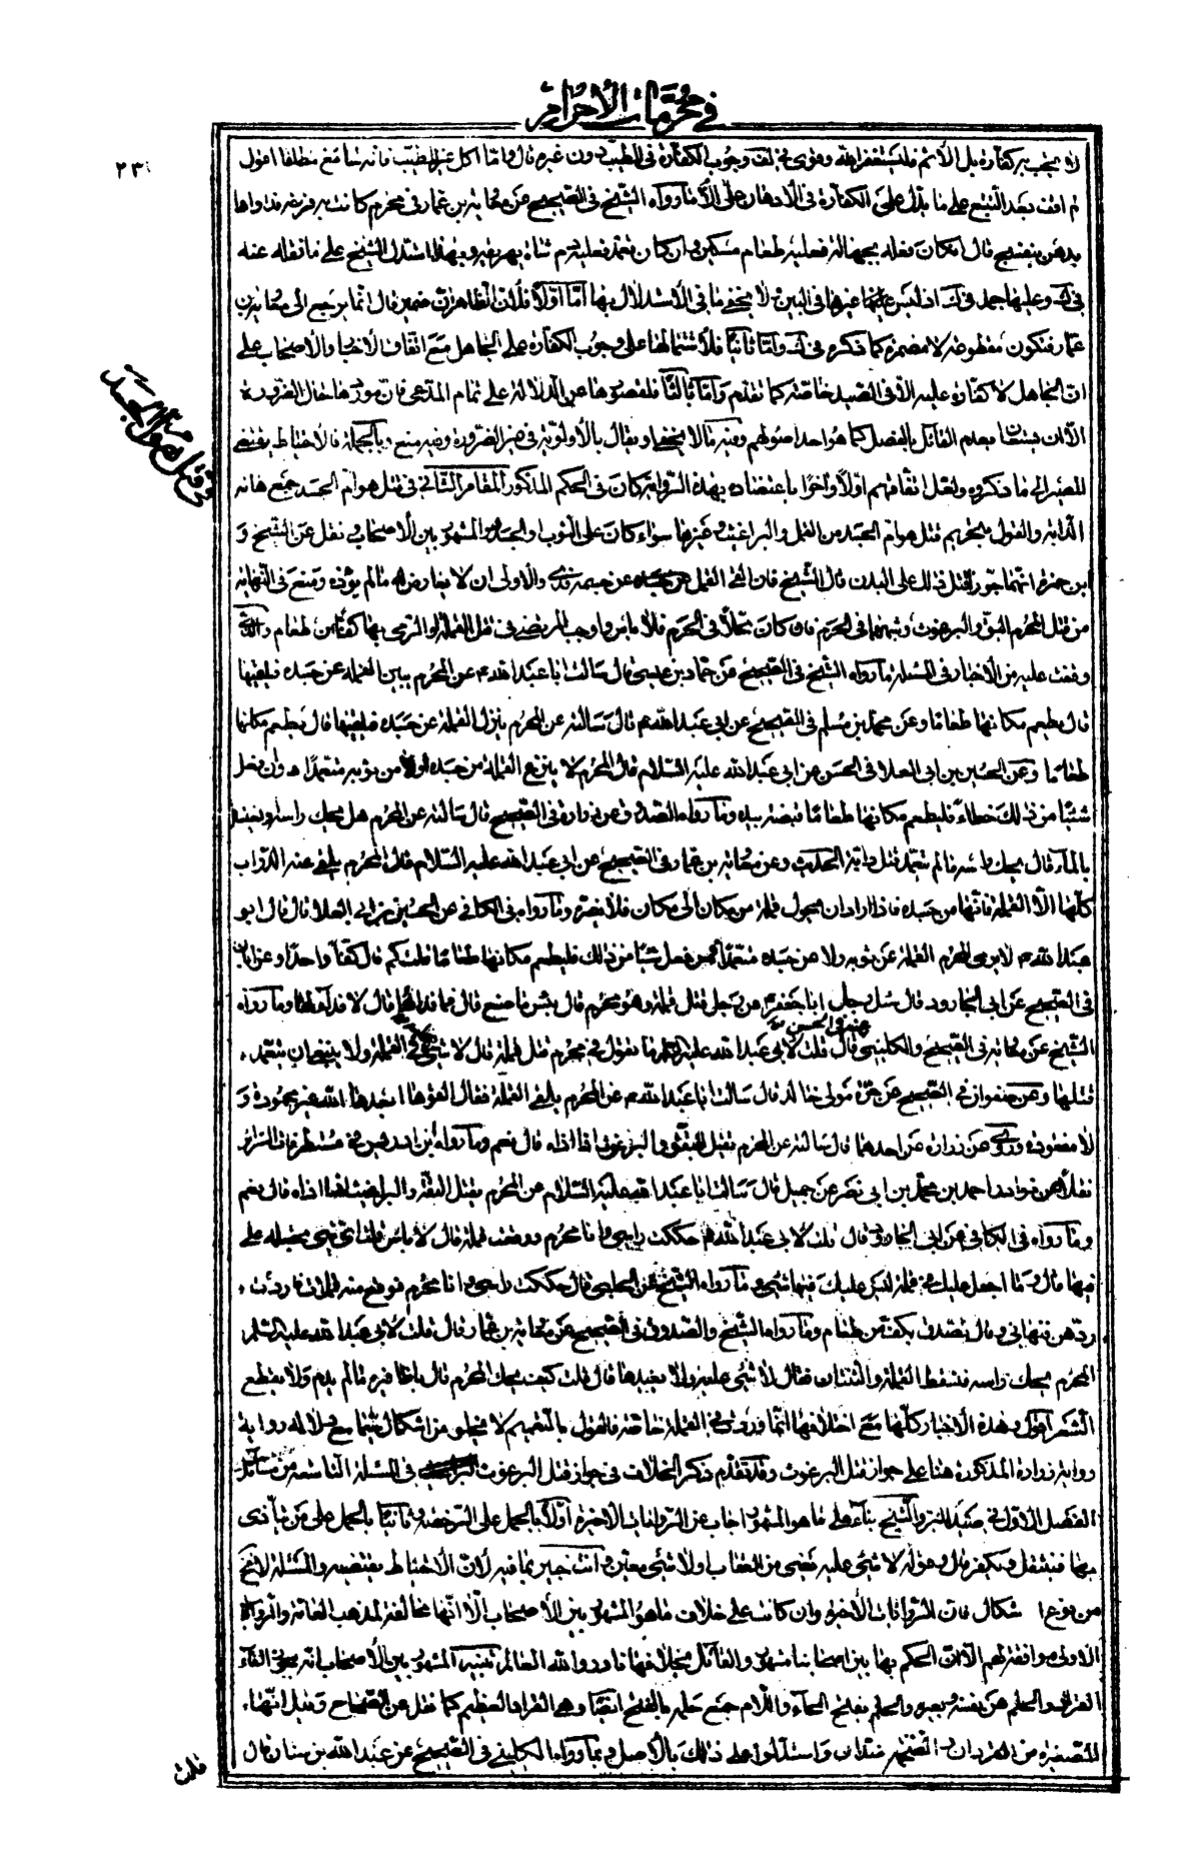 في محرمات الأحرام
٢٣
بل الأثم فليستغفر الله وقوى في وجوب الكفارة في الطيب دون غيره قال وأما أكل غير الطيب فانه سائغ مطلقا اقول
لم اقف بعد التتبع على ما يدل على الكفارة في الأدهان على الا ما رواه الشيخ في الصحيح عن معاوية بن عمار في محرم كانت به قرحة فداواها
بدهن بنفسج قال ان كان فعله بجهالة فعليه طعام مسكين وان كان تعمد فعليه دم شاة يهريقه وبهذا استدل الشيخ على ما نقله عنه
في وعليها حمل في اذ ليس عليها غيرها في البين ولا يخفى ما في الأستدلال بها أما أولا فلان الظاهر ان ضمير قال انما يرجع الى معاوية بن
عمار فتكون مقطوعة لا مضمرة كما ذكره في وأما ثانيا فلأشتمالها على وجوب الكفارة على الجاهل مع اتفاق الأخبار والأصحاب على
ان الجاهل لا كفارة عليه الا في الصيد خاصة كما تقدم وأما ثالثا فلقصورها عن الدلالة على تمام المدعى فان موردها حال الضرورة
الا ان يستعان بعدم القائل بالفصل كما هو احد اصولهم وفيه ما لا يخفى او يقال بالأولوية في غير الضرورة وفيه منع وبالجملة فالأحتياط يقتضي
المصير الى ما ذكروه ولعل اتفاقهم اولا وآخرا باعتضاده بهذه الرواية كاف في الحكم المذكور المقام الثاني في قتل هوام الجسد جمع هامة
في قتل هوام الجسد
الدابة والقول بتحريم قتل هوام الجسد من القمل والبراغيث وغيرها سواء كان على الثوب او الجسد هو المشهور بين الأصحاب ونقل عن الشيخ و
ابن حمزة انهما جوزا قتل ذلك على البدن قال الشيخ فان القى القمل عن جسمه فدى والاولى ان لا يعارض له ما لم يؤذه ومنع في النهاية
من قتل المحرم البق والبرغوث وشبههما في الحرم فان كان محلا في الحرم فلا باس واوجب المرتضى في قتل القملة او الرمي بها كفا من طعام والذي
وقفت عليه من الأخبار في المسئلة ما رواه الشيخ في الصحيح عن حماد بن عيسى قال سالت ابا عبد الله ع عن المحرم يبين القملة عن جسده فيلقيها
قال يطعم مكانها طعاما وعن محمد بن مسلم في الصحيح عن ابي عبد الله ع قال سالته عن المحرم ينزع القملة عن جسده فيلقيها قال يطعم مكانها
طعاما وعن الحسين بن ابي العلا في الحسن عن ابي عبد الله عليه السلام قال المحرم لا ينزع القملة من جسده ولا من ثوبه متعمدا وان فعل
شيئا من ذلك خطاء فليطعم مكانها طعاما قبضة بيده وما رواه الصدوق عن زرارة في الصحيح قال سالته عن المحرم هل يحك راسه ويغسله
بالماء قال يحك راسه ما لم يتعمد قتل دابة الحديث وعن معاوية بن عمار في الصحيح عن ابي عبد الله عليه السلام قال المحرم يلقي عنه الدواب
كلها الا القملة فانها من جسده فاذا اراد ان يحول قملة من مكان الى مكان فلا يضره وما رواه في الكافي عن الحسين بن ابي العلا قال قال ابو
عبد الله ع لا يرمي المحرم القملة عن ثوبه ولا من جسده متعمدا فمن فعل شيئا من ذلك فليطعم مكانها طعاما قلت كم قال كفا واحدا وعن ابان
في الصحيح عن ابي الجارود قال سئل رجل ابا جعفر ع عن رجل قتل قملة وهو محرم قال بئس ما صنع قال فما فداؤها قال لا فداء لها وما رواه
الشيخ عن معاوية في الصحيح والكليني عنه في الحسن قال قلت لابي عبد الله عليه السلام ما تقول في محرم قتل قملة قال لا شيء في القملة ولا ينبغي ان يتعمد
قتلها وعن صفوان في الصحيح عن مرة مولى خالد قال سالت ابا عبد الله ع عن المحرم يلقي القملة فقال القوها ابعدها الله غير محمودة و
لا مفقودة وروى عن زرارة عن احدهما قال سالته عن المحرم يقتل البقة والبرغوث اذا اذاه قال نعم وما رواه ابن ادريس في مستطرفات السرائر
نقلا من نوادر احمد بن محمد بن ابي نصر عن جميل قال سالت ابا عبد الله عليه السلام عن المحرم يقتل البقة والبراغيث اذا اذاه قال نعم
وما رواه في الكافي عن ابي الجارود قال قلت لابي عبد الله ع حككت راسي وانا محرم ووقعت قملة قال لا باس قلت اي شيء تجعل علي
فيها قال وما اجعل عليك في قملة ليس عليك فيها شيء وما رواه الشيخ عن الحلبي قال حككت راسي وانا محرم فوقع منه قملات فاردت
ردهن فنهاني وقال تصدق بكف من طعام وما رواه الشيخ والصدوق في الصحيح عن معاوية بن عمار قال قلت لابي عبد الله عليه السلام
المحرم يحك راسه فتسقط القملة والثنتان فقال لا شيء عليه ولا يعيدها قال قلت كيف يحك المحرم قال باظافيره ما لم يدم ولا يقطع
الشعر اقول وهذه الأخبار كلها مع اختلافها انما وردت في القملة خاصة فالقول بالتعميم لا يخلو من اشكال سيما مع دلالة رواية
رواية زرارة المذكورة هنا على جواز قتل البرغوث وقد تقدم ذكر الخلاف في جواز قتل البرغوث في المسئلة التاسعة من مسائل
الفصل الأول في صيد البر والشيخ بناء على ما هو المشهور اجاب عن الروايات الأخيرة أولا بالحمل على الرخصة وثانيا بالحمل على من يتأذى
بها فيقتل ويكفر قال وقوله لا شيء عليه يعني من العقاب ولا شيء معين وانت خبير بما فيه لأن الأحتياط يقتضيه والمسئلة لا تخ
من نوع اشكال فان الروايات الأخيرة وان كانت على خلاف ما هو المشهور بين الأصحاب الا انها مخالفة لمذهب العامة والروايات
الاولى موافقة لهم الا ان الحكم بها بين اصحابنا مشهور والقائل بخلافها نادر والله العالم تنبيه المشهور بين الأصحاب انه يجوز القاء
القراد والحلم عن نفسه وبعيره والحلم بفتح الحاء واللام جمع حلمة بالفتح ايضا وهي القراد العظيم كما نقل عن الصحاح وقيل انها
الصغيرة من القردان واستدلوا على ذلك بالأصل وبما رواه الكليني في الصحيح عن عبد الله بن سنان قال
قلت